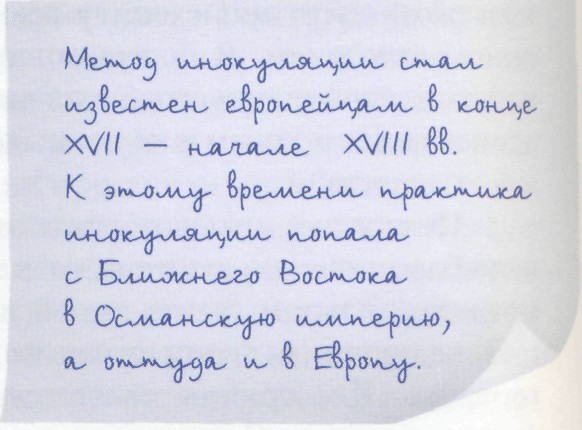 Метод инокуляции стал
известен европейцам в конце
XVII — начале XVIII вв.
К этому времени практика
инокуляции попала
с Ближнего Востока
в Османскую империю,
а оттуда и в Европу.